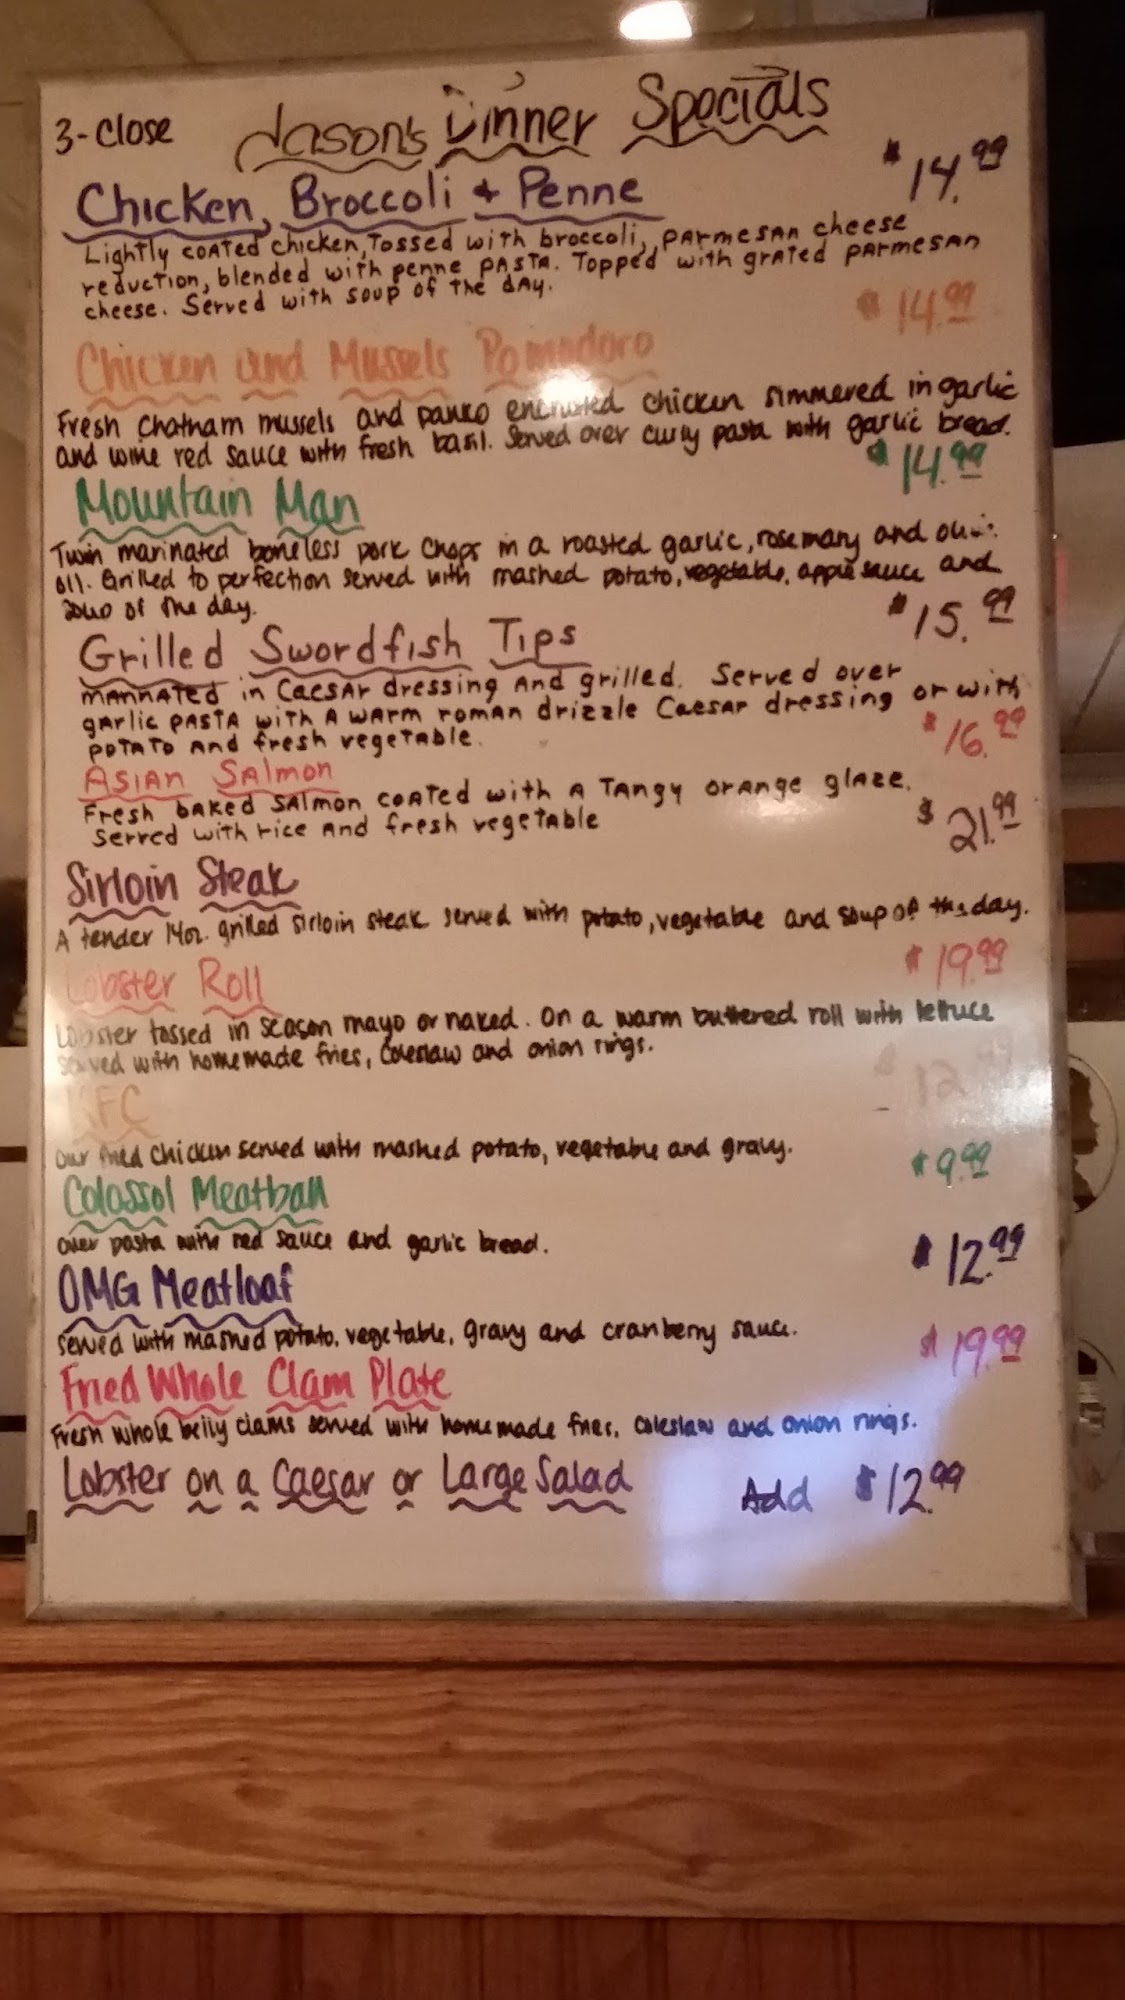 3-Close Jason's Dinner Specials
Chicken, Broccoli + Penne $14.99
Lightly coated chicken, tossed with broccoli, parmesan cheese
reduction, blended with penne pasta. Topped with grated parmesan
cheese. Served with soup of the day.
Chicken and Mussels Pomodoro $14.99
Fresh Chatham mussels and panko encrusted chicken simmered in garlic
and wine red sauce with fresh basil. Served over curly pasta with garlic bread.
Mountain Man $14.99
Twin marinated boneless pork chops in a roasted garlic, rosemary and
oil. Grilled to perfection served with mashed potato, vegetable, apple sauce and
soup of the day.
Grilled Swordfish Tips $15.99
marinated in Caesar dressing and grilled. Served over
garlic pasta with a warm roman drizzle Caesar dressing or with
potato and fresh vegetable.
Asian Salmon $16.99
Fresh baked salmon coated with a tangy orange glaze.
Served with rice and fresh vegetable
Sirloin Steak $21.99
A tender 14oz. grilled sirloin steak served with potato, vegetable and soup of the day.
Lobster Roll $19.99
Lobster tossed in season mayo or naked. On a warm buttered roll with lettuce
served with homemade fries, coleslaw and onion rings.
KFC $12.99
Our fried chicken served with mashed potato, vegetable and gravy.
Colassol Meatball $9.99
Over pasta with red sauce and garlic bread.
OMG Meatloaf $12.99
Served with mashed potato, vegetable, gravy and cranberry sauce.
Fried Whole Clam Plate $19.99
Fresh whole belly clams served with homemade fries, coleslaw and onion rings.
Lobster on a Caesar or Large Salad Add $12.99